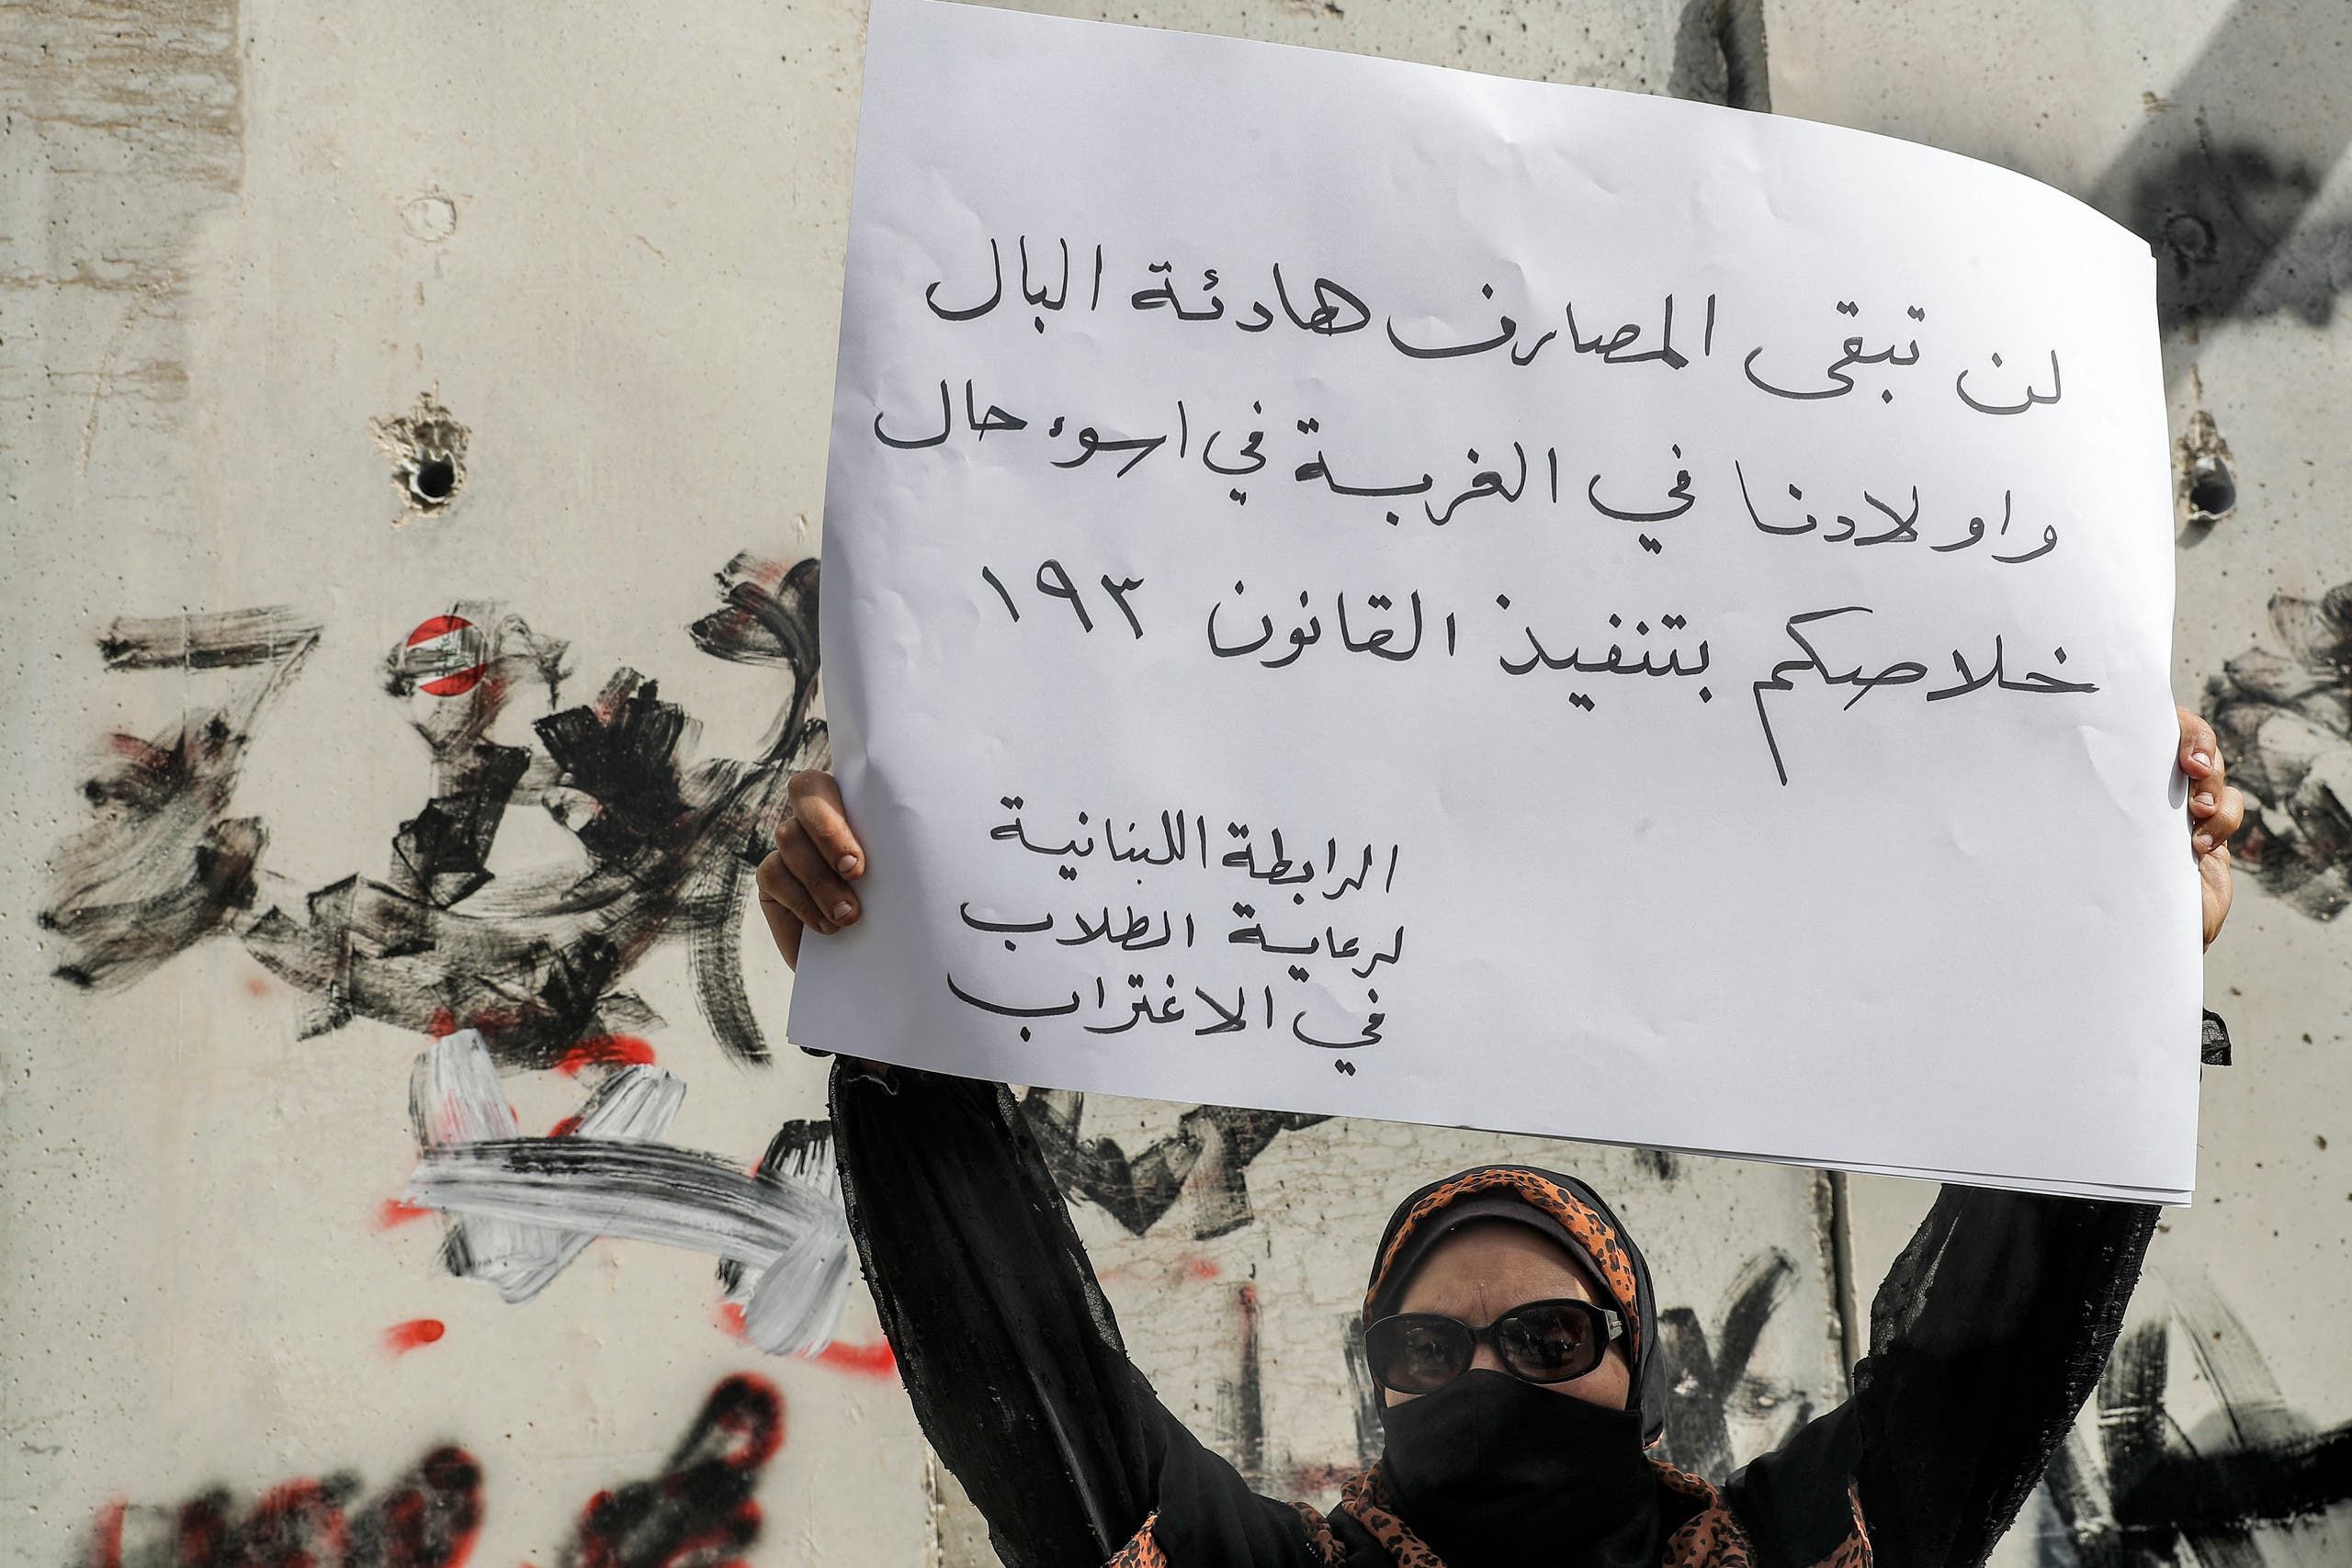 لن تبقى المصارف هادئة البال
واولادنا في الغربة في اسوء حال
خلاصكم بتنفيذ القانون ١٩٣
الرابطة اللبنانية
لرعاية الطلاب
في الاغتراب